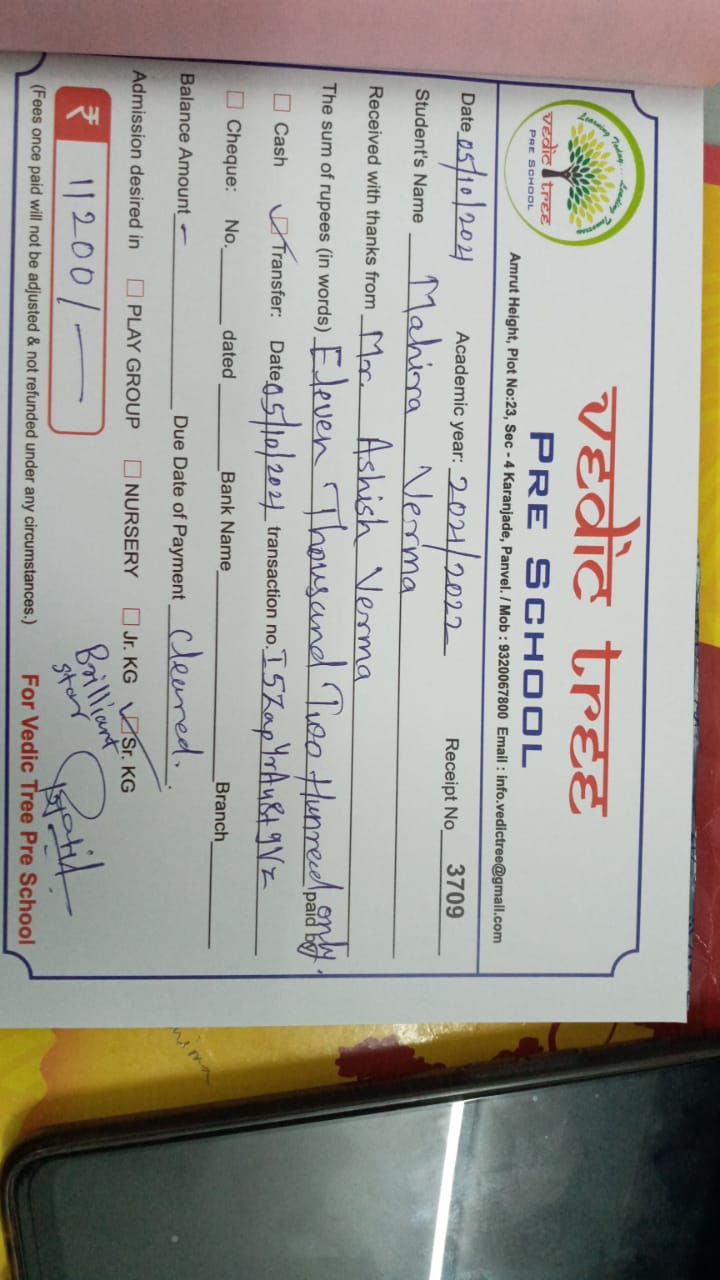 Learning Today... Leading Tomorrow
vedic tree
PRE SCHOOL
vedic tree
PRE SCHOOL
Amrut Height, Plot No:23, Sec - 4 Karanjade, Panvel. / Mob : 9320067800 Email : info.vedictree@gmail.com
Date 05/10/2021 Academic year: 2021/2022 Receipt No 3709
Student's Name Mahira Verma
Received with thanks from Mr. Ashish Verma
The sum of rupees (in words) Eleven Thousand Two Hunread only. paid by
Cash Transfer: Date 05/10/2021 transaction no.
Cheque: No. dated Bank Name Branch
Balance Amount - Due Date of Payment Cleared.
Admission desired in PLAY GROUP NURSERY Jr. KG Sr. KG
Brilliant
star
₹ 11200/-
(Fees once paid will not be adjusted & not refunded under any circumstances.) For Vedic Tree Pre School